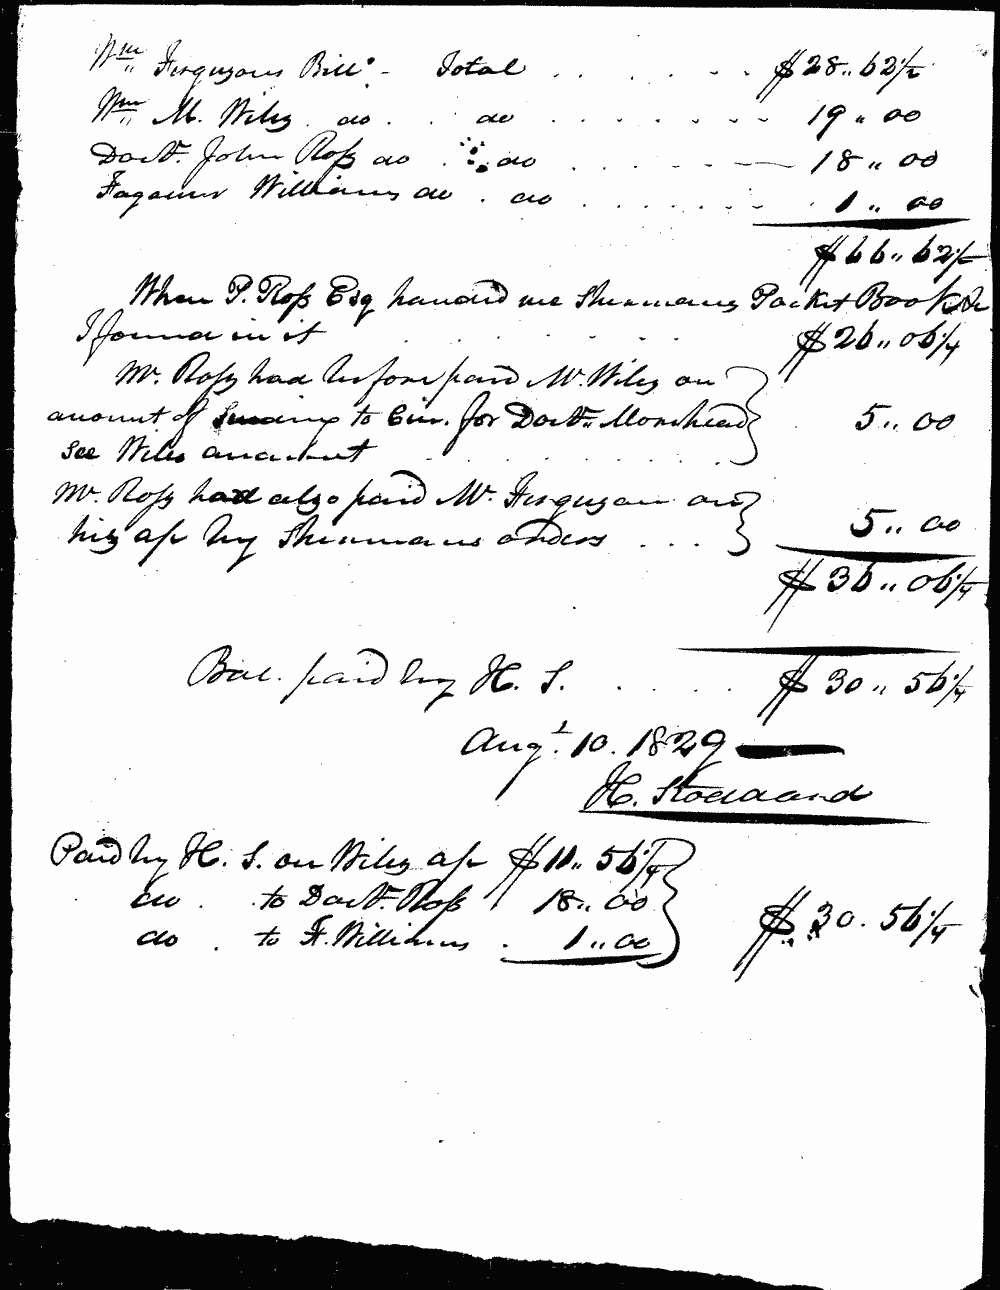 Wm Fergusons Bill - Total . . . . . . $28.. 62 1/2
Wm M. Wiley do . . do . . . . . . . 19 .. 00
Doct. John Ross do . do . . . . . . 18 .. 00
Williams do . do . . . . . . . 1 .. 00
$66.. 62 1/2
When P. Ross Esq handed me Shermans Pocket Book &c
I found in it . . . . . . $26.. 06 1/4
Mr. Ross had before paid Mr. Wiley on
amount of to Cin. for Doct. Morehead 5.. 00
See Wileys amount . . . . . . .
Mr. Ross had also paid Mr. Ferguson on
his a/c by Shermans orders . . . 5.. 00
$36.. 06 1/4
Bal. paid by H. S. . . . . $30.. 56 1/4
Augt. 10. 1829
H. Stoddard
Paid by H. S. on Wiley a/c $11.. 56 1/4
do . to Doct. Ross 18.. 00 $30. 56 1/4
do . to F. Williams . 1.. 00